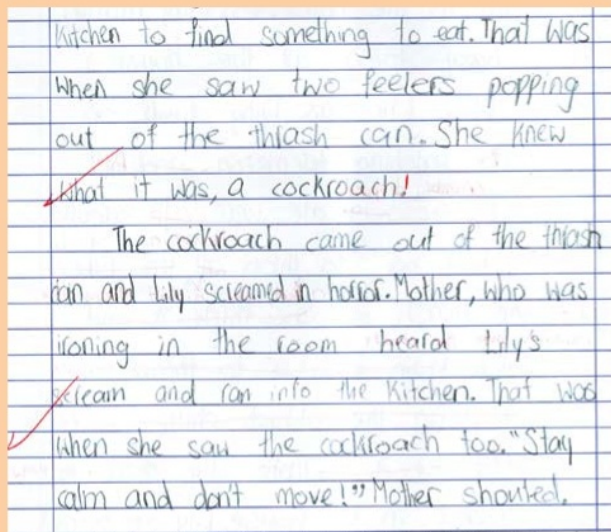 Kitchen to find something to eat. That was
When she saw two feelers popping
out of the thrash can. She knew
What it was, a cockroach!
The cockroach came out of the thrash
can and Lily screamed in horror. Mother, who was
ironing in the room heard Lily's
scream and ran into the Kitchen. That was
When she saw the cockroach too. "Stay
calm and don't move!" Mother shouted.